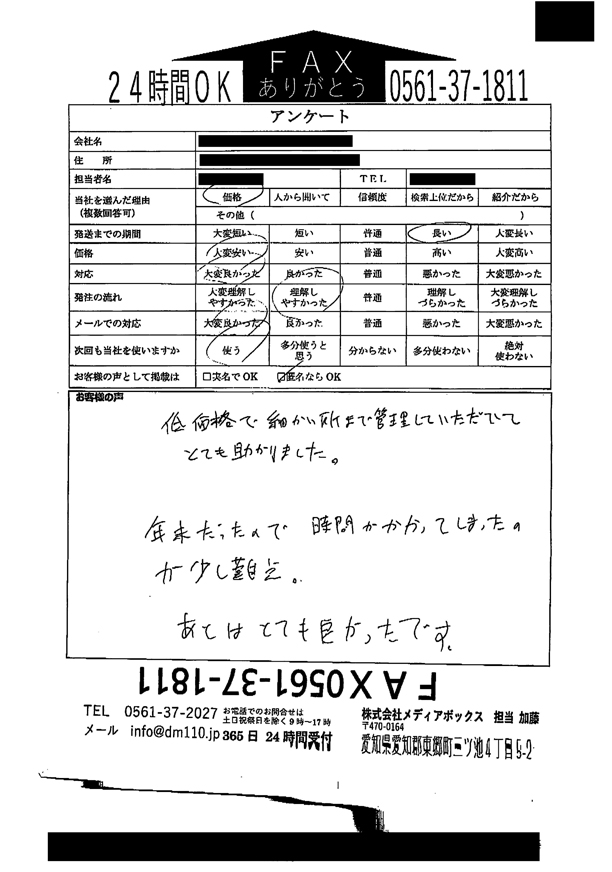 FAX
ありがとう
24時間OK
0561-37-1811
アンケート
会社名
住 所
担当者名
TEL
当社を選んだ理由
(複数回答可)
価格 人から聞いて 信頼度 検索上位だから 紹介だから
その他 ( )
発送までの期間 大変短い 短い 普通 長い 大変長い
価格 大変安い 安い 普通 高い 大変高い
対応 大変良かった 良かった 普通 悪かった 大変悪かった
発注の流れ 大変理解しやすかった 理解しやすかった 普通 理解しづらかった 大変理解しづらかった
メールでの対応 大変良かった 良かった 普通 悪かった 大変悪かった
次回も当社を使いますか 使う 多分使うと思う 分からない 多分使わない 絶対使わない
お客様の声として掲載は □実名でOK ☑匿名ならOK
お客様の声
低価格で細かい所まで管理していただいて
とても助かりました。
年末だったので 時間がかかってしまったの
が少し難点。
あとはとても良かったです。
FAX0561-37-1811
TEL 0561-37-2027 お電話でのお問合せは
土日祝祭日を除く9時〜17時
メール info@dm110.jp 365日 24時間受付
株式会社メディアボックス 担当 加藤
〒470-0164
愛知県愛知郡東郷町三ツ池4丁目5-2